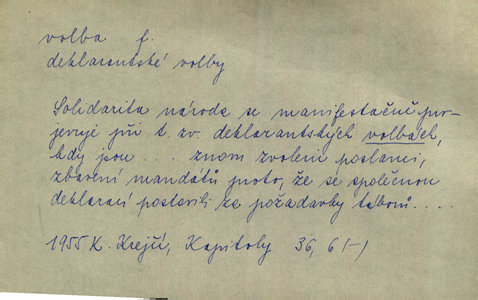 volba f.
deklarantské volby
Solidarita národa se manifestačně pro-
jevuje při t. zv. deklarantských volbách,
kdy jsou .... znovu zvoleni poslanci,
zbavení mandátů proto, že se společnou
deklarací postavili za požadavky táborů....
1955 K. Krejčí, Kapitoly 36, 6 (-)